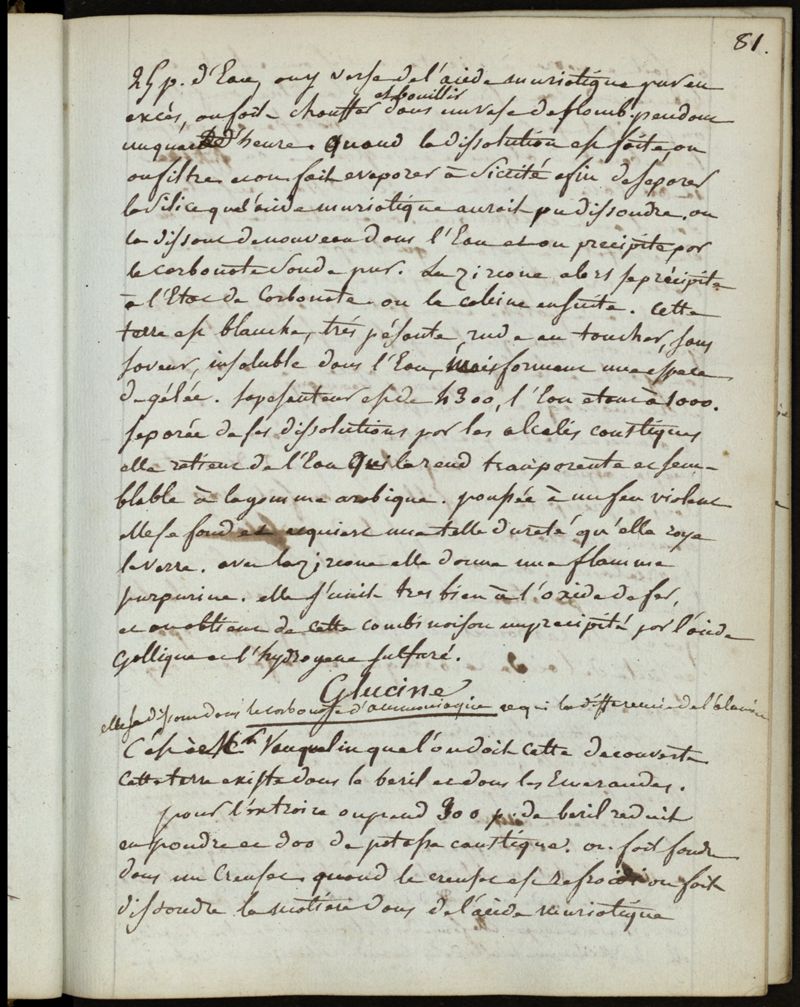 81.
25 p. d'Eau, on y verse de l'acide muriatique pur en
et bouillir
excès, on fait chauffer dans un vase de plomb pendant
un quart d'heure. quand la dissolution est faite on
on filtre et on fait evaporer à Siccité afin de separer
la Silice que l'acide muriatique auroit pu dissoudre. on
la dissout de nouveau dans l'Eau et on precipite par
le carbonate Soude pur. La zircone alors se précipite
à l'Etat de Carbonate. on la calcine ensuite. Cette
terre est blanche, très pésante, rude au toucher, sans
saveur, insoluble dans l'Eau, mais formant une espece
de gélée. sa pesanteur est de 4300, l'Eau etant à 1000.
separée de ses dissolutions par les alcalis caustiques
elle retient de l'Eau Qui la rend transparente et sem-
blable à la gomme arabique. poussée à un feu violent
elle se fond et acquiert une telle dureté qu'elle raye
le verre. avec la zircone elle donne une flamme
purpurine. elle s'unit tres bien à l'oxide de fer,
et on obtient de cette combinaison un precipité par l'acide
Gallique et l'hydrogene sulfuré.
Glucine
elle se dissout dans le carbonate d'ammoniaque ce qui la différencie de l'alumine
C'est à Mr. Vauquelin que l'on doit cette decouverte
Cette terre existe dans le beril et dans les Emeraudes.
pour l'extraire on prend 300 p. de beril reduit
en poudre et 300 de potasse caustique. on fait fondre
dans un Creuset. quand le creuset est refroidi on fait
dissoudre la matière dans de l'acide muriatique